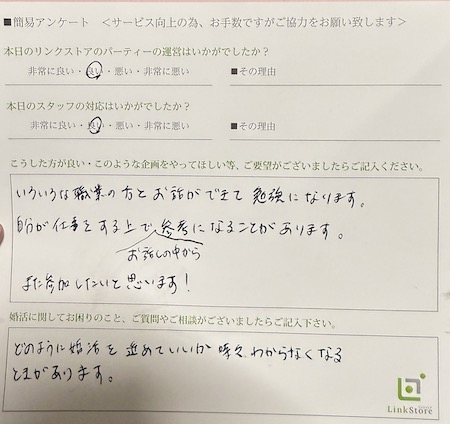 ■簡易アンケート ＜サービス向上の為、お手数ですがご協力をお願い致します＞
本日のリンクストアのパーティーの運営はいかがでしたか？
非常に良い・良い・悪い・非常に悪い ■その理由
本日のスタッフの対応はいかがでしたか？
非常に良い・良い・悪い・非常に悪い ■その理由
こうした方が良い・このような企画をやってほしい等、ご要望がございましたらご記入ください。
いろいろな職業の方とお話ができて勉強になります。
自分が仕事をする上で参考になることがあります。
お話しの中から
また参加したいと思います！
婚活に関してお困りのこと、ご質問やご相談がございましたらご記入下さい。
どのように婚活を進めていいか時々わからなくなる
ときがあります。
LinkStore